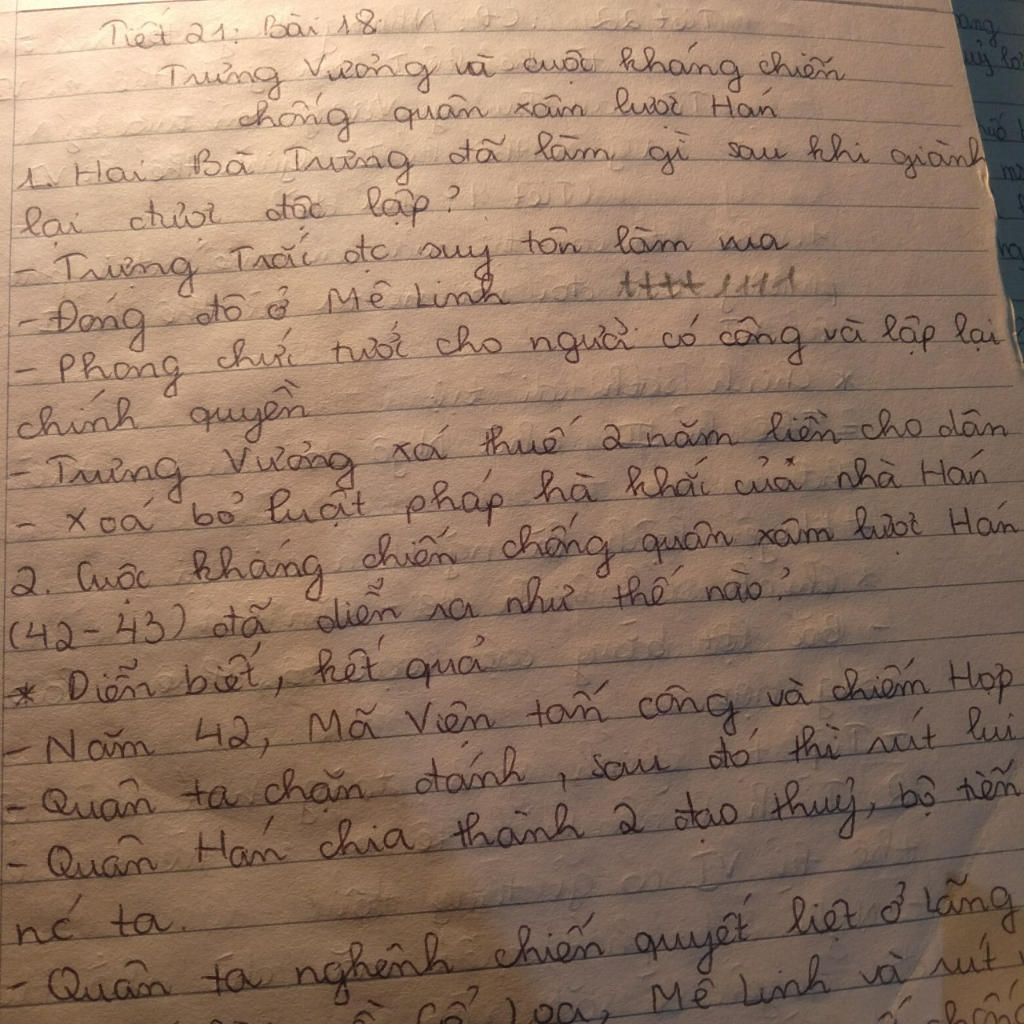 Tiết 21: Bài 18
Trưng Vương và cuộc kháng chiến
chống quân xâm lược Hán
1. Hai Bà Trưng đã làm gì sau khi giành
lại được độc lập?
- Trưng Trắc đc suy tôn làm vua
- Đóng đô ở Mê Linh
- Phong chức tước cho người có công và lập lại
chính quyền
- Trưng Vương xá thuế 2 năm liền cho dân
- Xoá bỏ luật pháp hà khắc của nhà Hán
2. Cuộc kháng chiến chống quân xâm lược Hán
(42-43) đã diễn ra như thế nào?
* Diễn biết, kết quả
- Năm 42, Mã Viện tấn công và chiếm Hợp
- Quân ta chặn đánh, sau đó thì rút lui
- Quân Hán chia thành 2 đạo thuỷ, bộ tiến
nc ta.
- Quân ta nghênh chiến quyết liệt ở Lãng
Cổ Loa, Mê Linh và rút